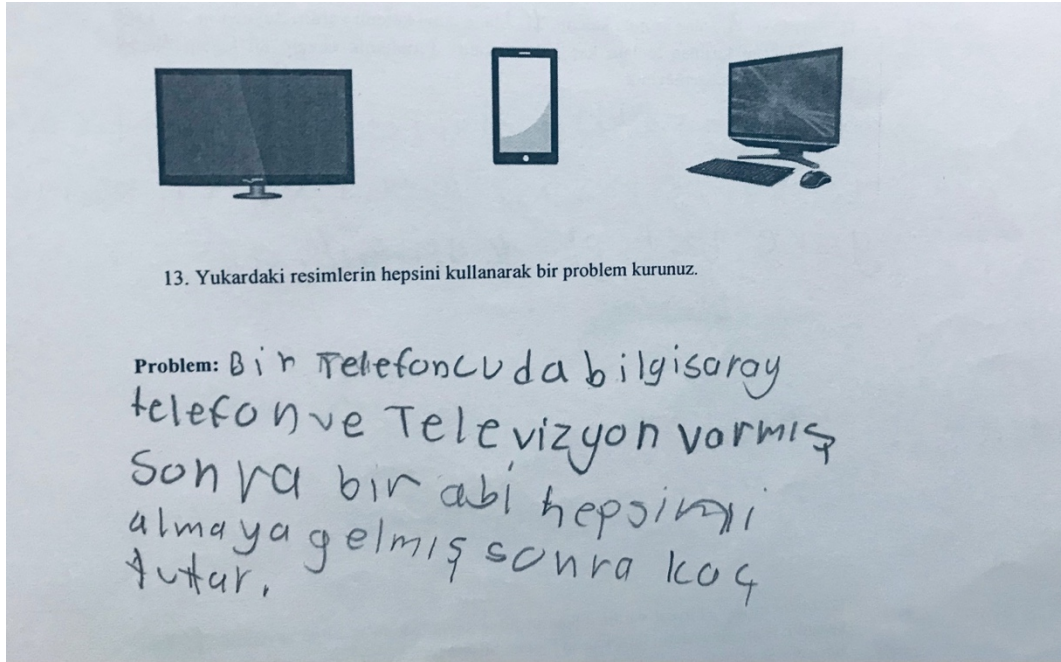 13. Yukardaki resimlerin hepsini kullanarak bir problem kurunuz.
Problem: Bir Telefoncuda bilgisaray
telefon ve Televizyon varmış
Sonra bir abi hepsini
almaya gelmiş sonra kaç
tutar.